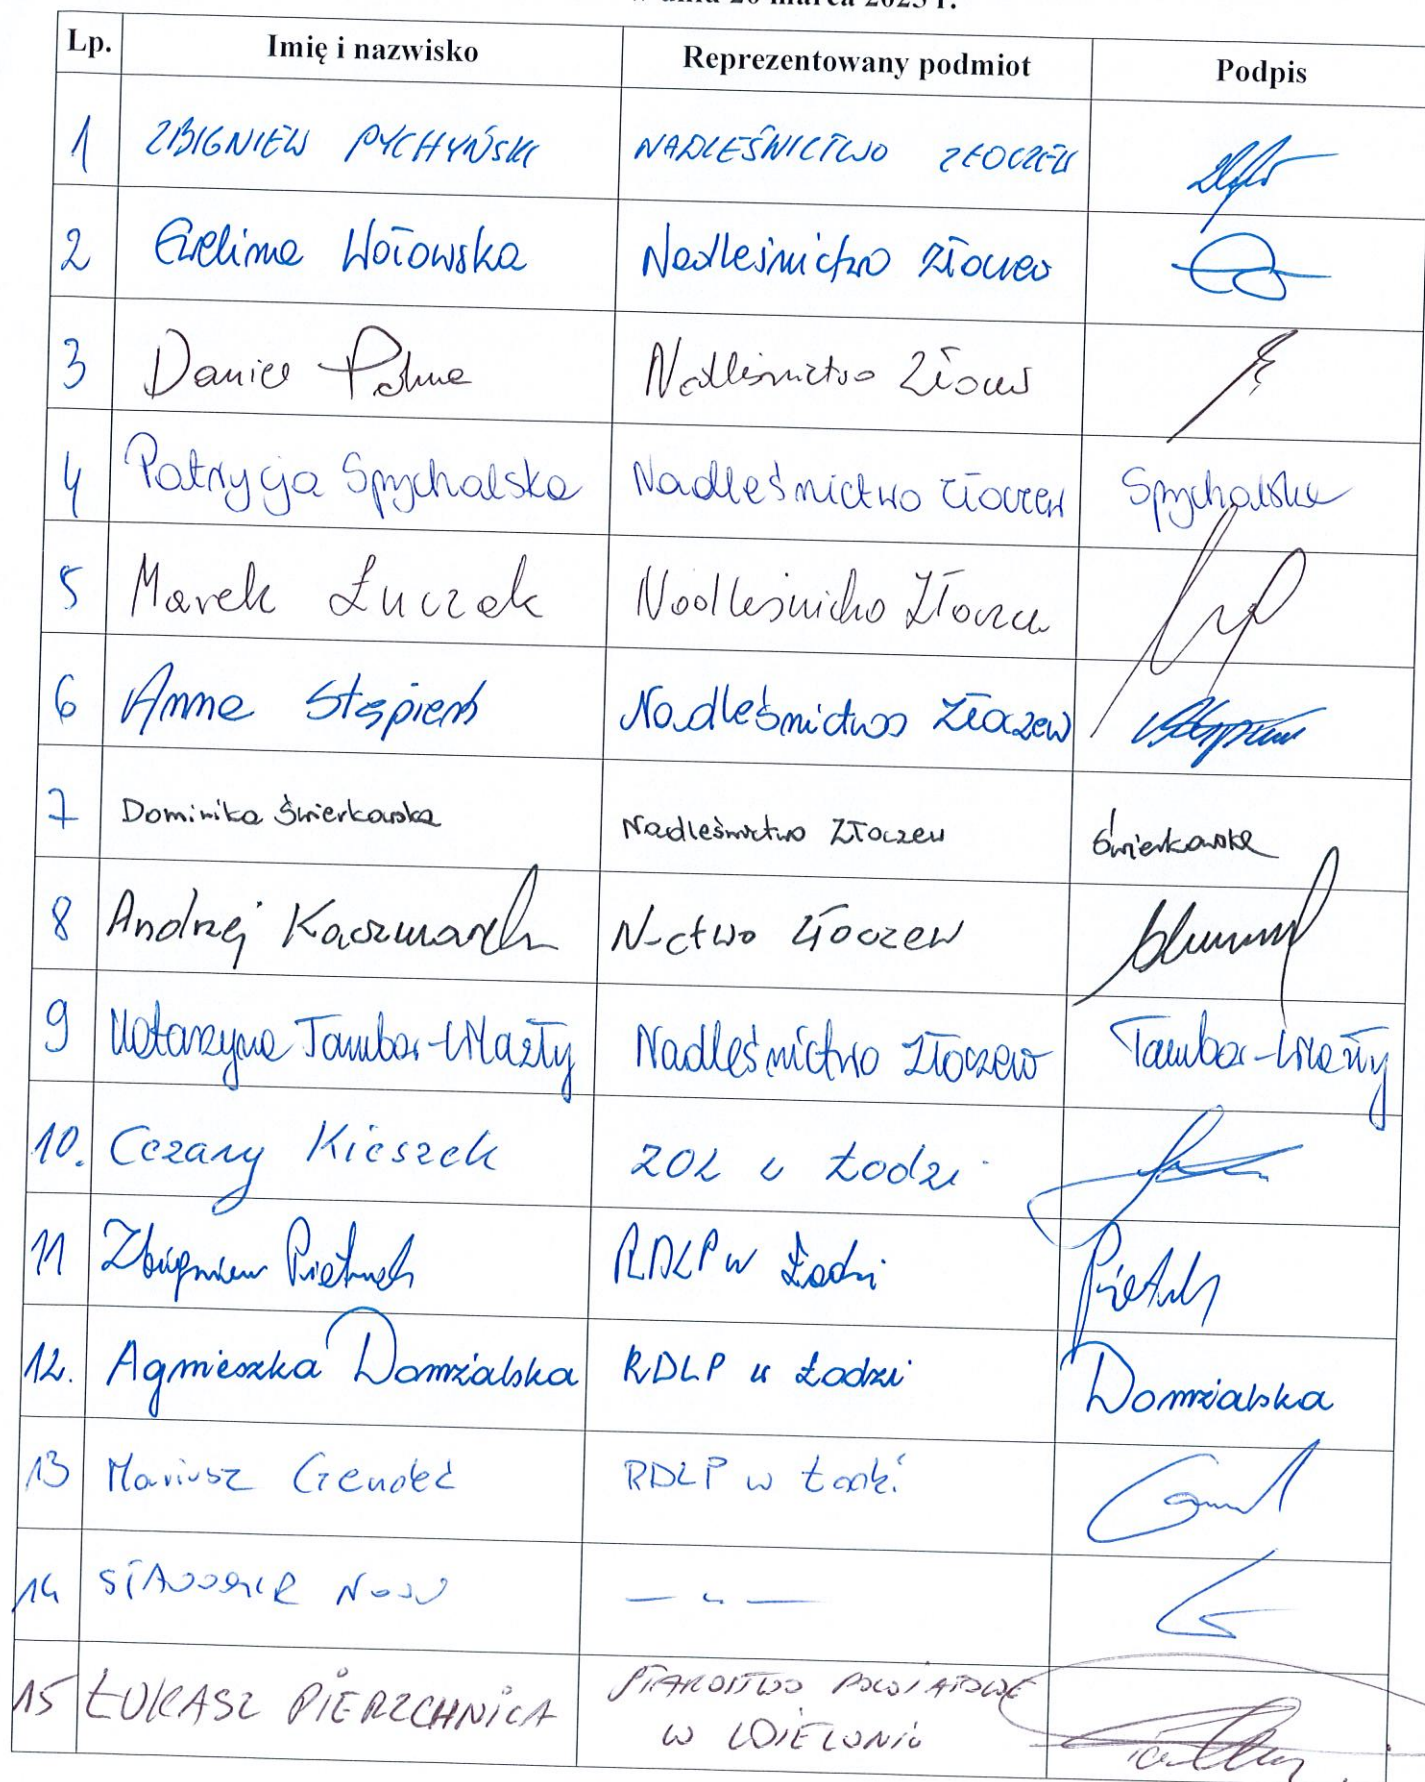 marca 2023 r.
Lp. Imię i nazwisko Reprezentowany podmiot Podpis
1 ZBIGNIEW PYCHYŃSKI NADLEŚNICTWO ZŁOCZEW
2 Ewelina Wołowska Nadleśnictwo Złoczew
3 Daniel Nadleśnictwo Złoczew
4 Patrycja Spychalska Nadleśnictwo Złoczew Spychalska
5 Marek Łuczak Nadleśnictwo Złoczew
6 Anna Stępień Nadleśnictwo Złoczew
7 Dominika Świerkowska Nadleśnictwo Złoczew Świerkowska
8 Andrzej Kaczmarek N-ctwo Złoczew
9 Katarzyna Tambor-Wlazły Nadleśnictwo Złoczew Tambor-Wlazły
10. Cezary Kieszek ZOL w Łodzi
11 Zbigniew Pietruch RDLP w Łodzi
12. Agnieszka Domżalska RDLP w Łodzi Domżalska
13 Mariusz RDLP w Łodzi
14 — „ —
15 ŁUKASZ PIERZCHNICA STAROSTWO POWIATOWE
W WIELUNIU